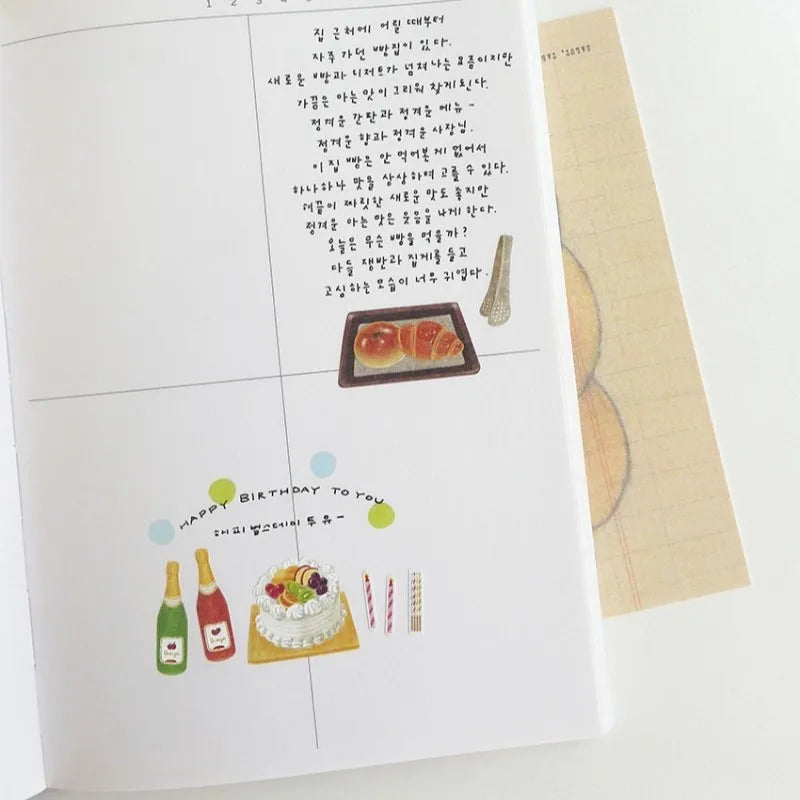 1 2 3 4
집 근처에 어릴 때부터
자주 가던 빵집이 있다.
새로운 빵과 디저트가 넘쳐나는 요즘이지만
가끔은 아는 맛이 그리워 찾게된다.
정겨운 간판과 정겨운 메뉴~
정겨운 향과 정겨운 사장님.
이 집 빵은 안 먹어본게 없어서
하나하나 맛을 상상하며 고를 수 있다.
혀끝이 짜릿한 새로운 맛도 좋지만
정겨운 아는 맛은 웃음을 나게 한다.
오늘은 무슨 빵을 먹을까?
다들 쟁반과 집게를 들고
고심하는 모습이 너무 귀엽다.
HAPPY BIRTHDAY TO YOU
해피 벌스데이 투 유~